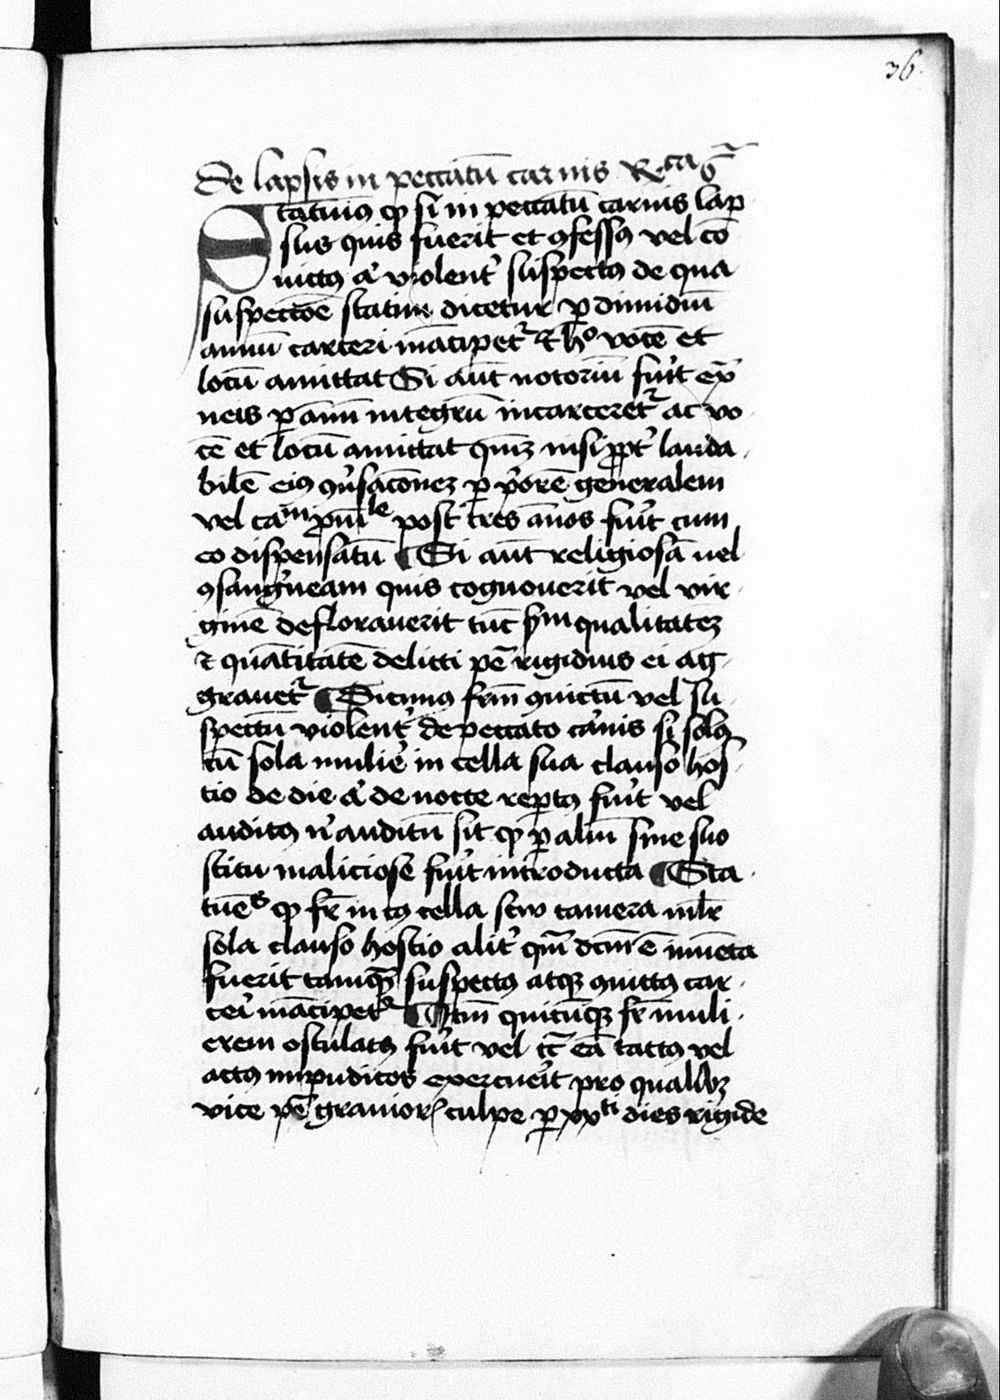 36
De lapsis in peccatū carnis Rᵉᶜᵃ 6
Statuimꝰ ꝙ si in peccatū carnis lap
sus quis fuerit et ꝯfessꝰ vel cō
uictꝰ a' violent' suspectꝰ de qua
suspectōe statim dicetur ꝑ dimidiū
annū carceri mācipet᷑ ⁊ hº vocē et
locū amittat Si aūt notoriū fu'it
ꝑ annū integrū incarceret᷑ ac vo
cē et locū amittat nisi ꝓpt' lauda
bilē eiꝰ ꝯu'sacōnez ꝑ p'orē generalem
vel ca'ᵐ pui'ˡᵉ post tres ānos fu'it cum
eo dispensatū ¶ Si aūt religiosā uel
ꝯsangu'neam quis cognouerit vel vir
ginē deflorauerit tūc qualitatez
⁊ quātitatē delicti pē rigidius ei ag
grauet᷑ ¶ Dicimꝰ frēm ꝯuictū vel su
spectū violent' de peccato ca'nis si solꝰ
cū sola mulie' in cella sua clauso hos
tio de die a' de nocte reꝑtꝰ fu'it vel
auditꝰ n' auditū sit ꝙ ꝑ aliū sine suo
scitu maliciose fu'it introducta ¶ Sta
tuēˢ ꝙ fr̄ in cꝰ cella seu camera mlr̄
sola clauso hostio alit' qm̄ dcm̄ ē inuēta
fuerit tamqᷓ suspectꝰ atqꝫ ꝯuictꝰ car
cei' mācipet᷑ ¶ Itm̄ quicūqꝫ fr̄ muli
erem osculatꝰ fu'it vel eā tactꝰ vel
actꝰ impudicos exercue'it pro qualibꝫ
vice pē grauiorꝭ culpe ꝑ xxᵗⁱ dies rigide